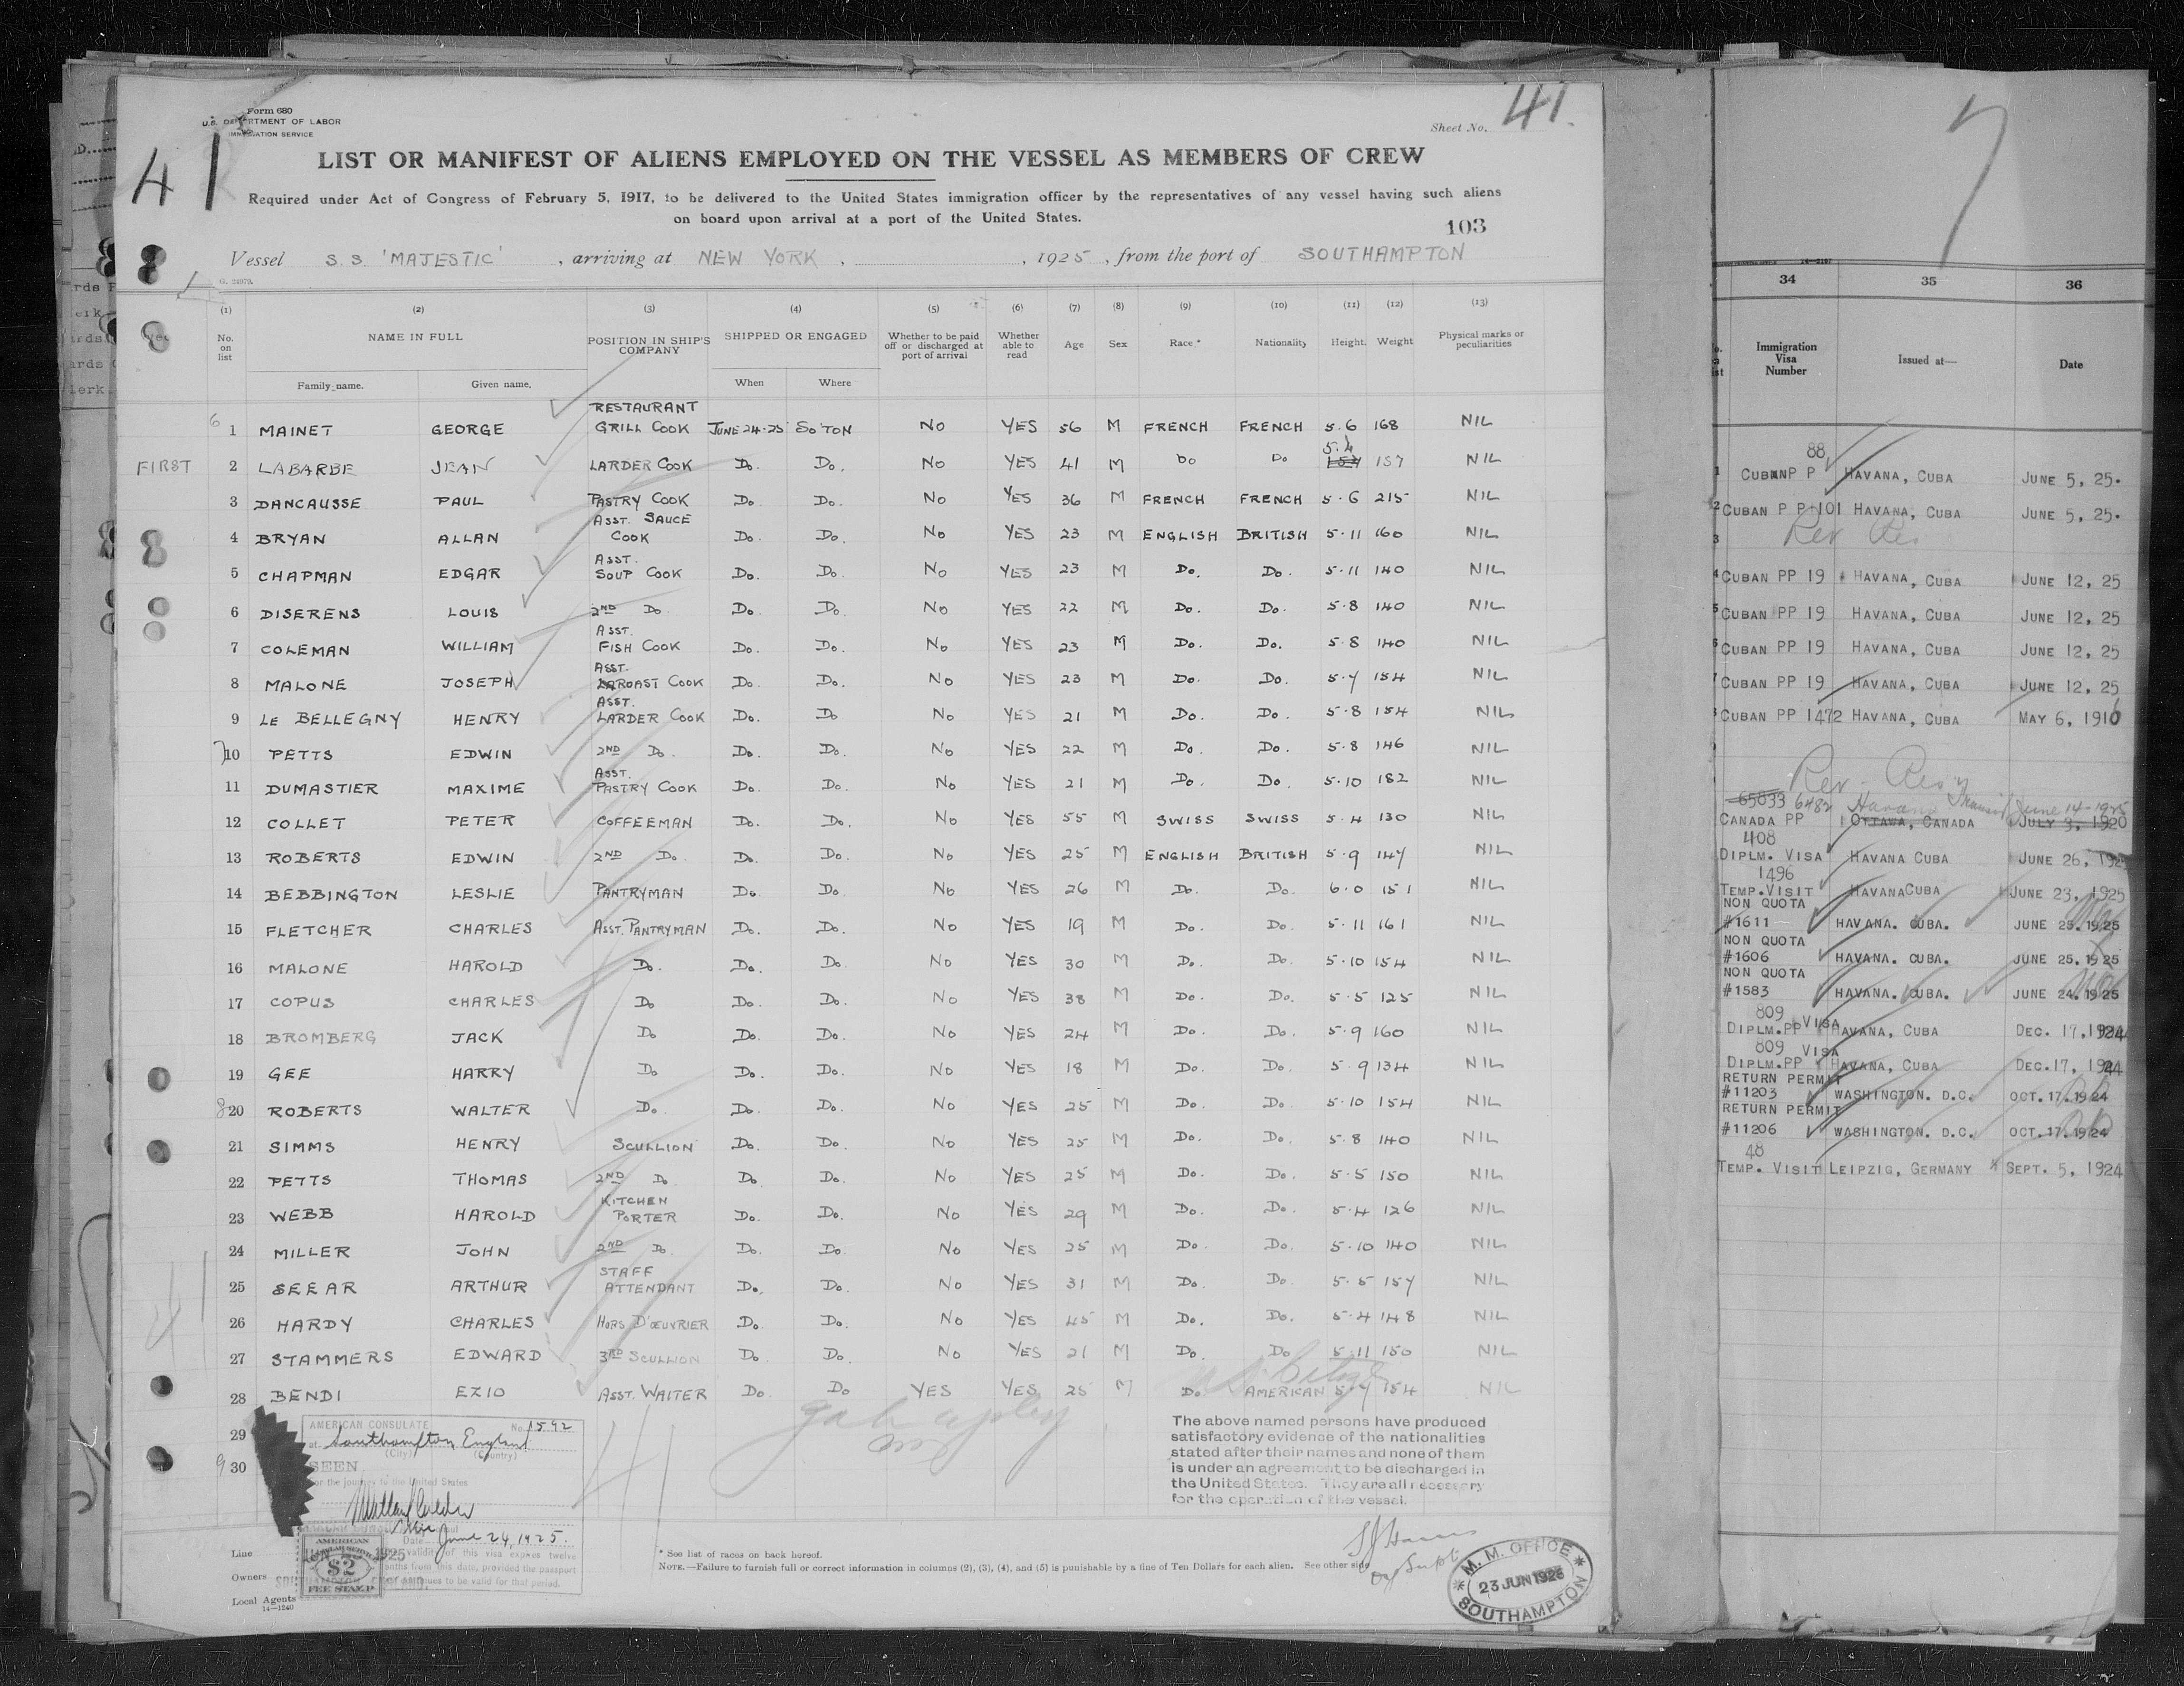 Form 680
U.S. DEPARTMENT OF LABOR
IMMIGRATION SERVICE
41
Sheet No. 41.
LIST OR MANIFEST OF ALIENS EMPLOYED ON THE VESSEL AS MEMBERS OF CREW
Required under Act of Congress of February 5, 1917, to be delivered to the United States immigration officer by the representatives of any vessel having such aliens
on board upon arrival at a port of the United States.
103
Vessel S.S. 'MAJESTIC' , arriving at NEW YORK , , 1925 , from the port of SOUTHAMPTON
(1) (2) (3) (4) (5) (6) (7) (8) (9) (10) (11) (12) (13)
No. on list NAME IN FULL POSITION IN SHIP'S COMPANY SHIPPED OR ENGAGED Whether to be paid off or discharged at port of arrival Whether able to read Age Sex Race.* Nationality Height. Weight Physical marks or peculiarities
Family name. Given name. When Where
1 MAINET GEORGE RESTAURANT GRILL COOK JUNE 24-25 SO'TON NO YES 56 M FRENCH FRENCH 5.6 168 NIL
FIRST 2 LABARBE JEAN LARDER COOK Do. Do. No YES 41 M Do Do 5.4 157 NIL
3 DANCAUSSE PAUL PASTRY COOK Do. Do. No YES 36 M FRENCH FRENCH 5.6 215 NIL
4 BRYAN ALLAN ASST. SAUCE COOK Do. Do. No YES 23 M ENGLISH BRITISH 5.11 160 NIL
5 CHAPMAN EDGAR ASST. SOUP COOK Do. Do. No YES 23 M Do. Do. 5.11 140 NIL
6 DISERENS LOUIS 2ND Do. Do. Do. No YES 22 M Do. Do. 5.8 140 NIL
7 COLEMAN WILLIAM ASST. FISH COOK Do. Do. No YES 23 M Do. Do. 5.8 140 NIL
8 MALONE JOSEPH ASST. ROAST COOK Do. Do. No YES 23 M Do. Do. 5.7 154 NIL
9 LE BELLEGNY HENRY ASST. LARDER COOK Do. Do No YES 21 M Do. Do. 5.8 154 NIL
10 PETTS EDWIN 2ND Do. Do. Do. No YES 22 M Do. Do. 5.8 146 NIL
11 DUMASTIER MAXIME ASST. PASTRY COOK Do. Do. No YES 21 M Do. Do. 5.10 182 NIL
12 COLLET PETER COFFEEMAN Do. Do. No YES 55 M SWISS SWISS 5.4 130 NIL
13 ROBERTS EDWIN 2ND Do. Do. Do. No YES 25 M ENGLISH BRITISH 5.9 147 NIL
14 BEBBINGTON LESLIE PANTRYMAN Do. Do. No YES 26 M Do. Do. 6.0 151 NIL
15 FLETCHER CHARLES ASST. PANTRYMAN Do. Do. No YES 19 M Do. Do. 5.11 161 NIL
16 MALONE HAROLD Do. Do. Do. No YES 30 M Do. Do. 5.10 154 NIL
17 COPUS CHARLES Do Do. Do. No YES 38 M Do. Do. 5.5 125 NIL
18 BROMBERG JACK Do Do. Do. No YES 24 M Do. Do. 5.9 160 NIL
19 GEE HARRY Do Do. Do. No YES 18 M Do. Do. 5.9 134 NIL
20 ROBERTS WALTER Do. Do. Do. No YES 25 M Do. Do. 5.10 154 NIL
21 SIMMS HENRY SCULLION Do. Do. No YES 25 M Do. Do. 5.8 140 NIL
22 PETTS THOMAS 2ND Do Do. Do. No YES 25 M Do. Do. 5.5 150 NIL
23 WEBB HAROLD KITCHEN PORTER Do. Do. No YES 29 M Do. Do. 5.4 126 NIL
24 MILLER JOHN 2ND Do. Do. Do. No YES 25 M Do. Do. 5.10 140 NIL
25 SEEAR ARTHUR STAFF ATTENDANT Do. Do. No YES 31 M Do. Do. 5.5 157 NIL
26 HARDY CHARLES HORS D'ŒUVRIER Do. Do. No YES 45 M Do. Do. 5.4 148 NIL
27 STAMMERS EDWARD 3RD SCULLION Do. Do. No YES 21 M Do. Do 5.11 150 NIL
28 BENDI EZIO ASST. WAITER Do. Do YES YES 25 M Do. AMERICAN 5.7 154 NIL
29
30
AMERICAN CONSULATE No. 1592
at Southampton, England
(City) (Country)
SEEN
For the journey to the United States
Date June 24, 1925.
validity of this visa expires twelve
months from this date, provided the passport
continues to be valid for that period.
AMERICAN
$2
FEE STAMP
The above named persons have produced
satisfactory evidence of the nationalities
stated after their names and none of them
is under an agreement to be discharged in
the United States. They are all necessary
for the operation of the vessel.
Line
Owners
Local Agents
14—1240
* See list of races on back hereof.
NOTE.—Failure to furnish full or correct information in columns (2), (3), (4), and (5) is punishable by a fine of Ten Dollars for each alien. See other side
M. M. OFFICE
23 JUN 1925
SOUTHAMPTON
7
34 35 36
Immigration Visa Number Issued at— Date
88
CUBAN P P HAVANA, CUBA JUNE 5, 25.
CUBAN P P 101 HAVANA, CUBA JUNE 5, 25.
3 Rev Res
CUBAN PP 19 HAVANA, CUBA JUNE 12, 25
CUBAN PP 19 HAVANA, CUBA JUNE 12, 25
CUBAN PP 19 HAVANA, CUBA JUNE 12, 25
CUBAN PP 19 HAVANA, CUBA JUNE 12, 25
CUBAN PP 1472 HAVANA, CUBA MAY 6, 1916
65033 6482 Havana Transit June 14-1925
CANADA PP OTTAWA, CANADA JULY 3, 1920
408
DIPLM. VISA HAVANA CUBA JUNE 26, 192
1496
TEMP. VISIT HAVANA CUBA JUNE 23, 1925
NON QUOTA
#1611 HAVANA. CUBA. JUNE 25. 1925
NON QUOTA
#1606 HAVANA. CUBA. JUNE 25. 1925
NON QUOTA
#1583 HAVANA. CUBA. JUNE 24. 1925
809
DIPLM. PP VISA HAVANA, CUBA DEC. 17, 1924
809 VISA
DIPLM. PP HAVANA, CUBA DEC. 17, 1924
RETURN PERMIT
#11203 WASHINGTON. D.C. OCT. 17. 1924
RETURN PERMIT
#11206 WASHINGTON. D.C. OCT. 17. 1924
48
TEMP. VISIT LEIPZIG, GERMANY SEPT. 5, 1924